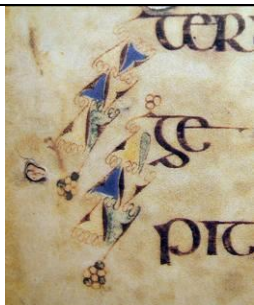 ter
se
pit